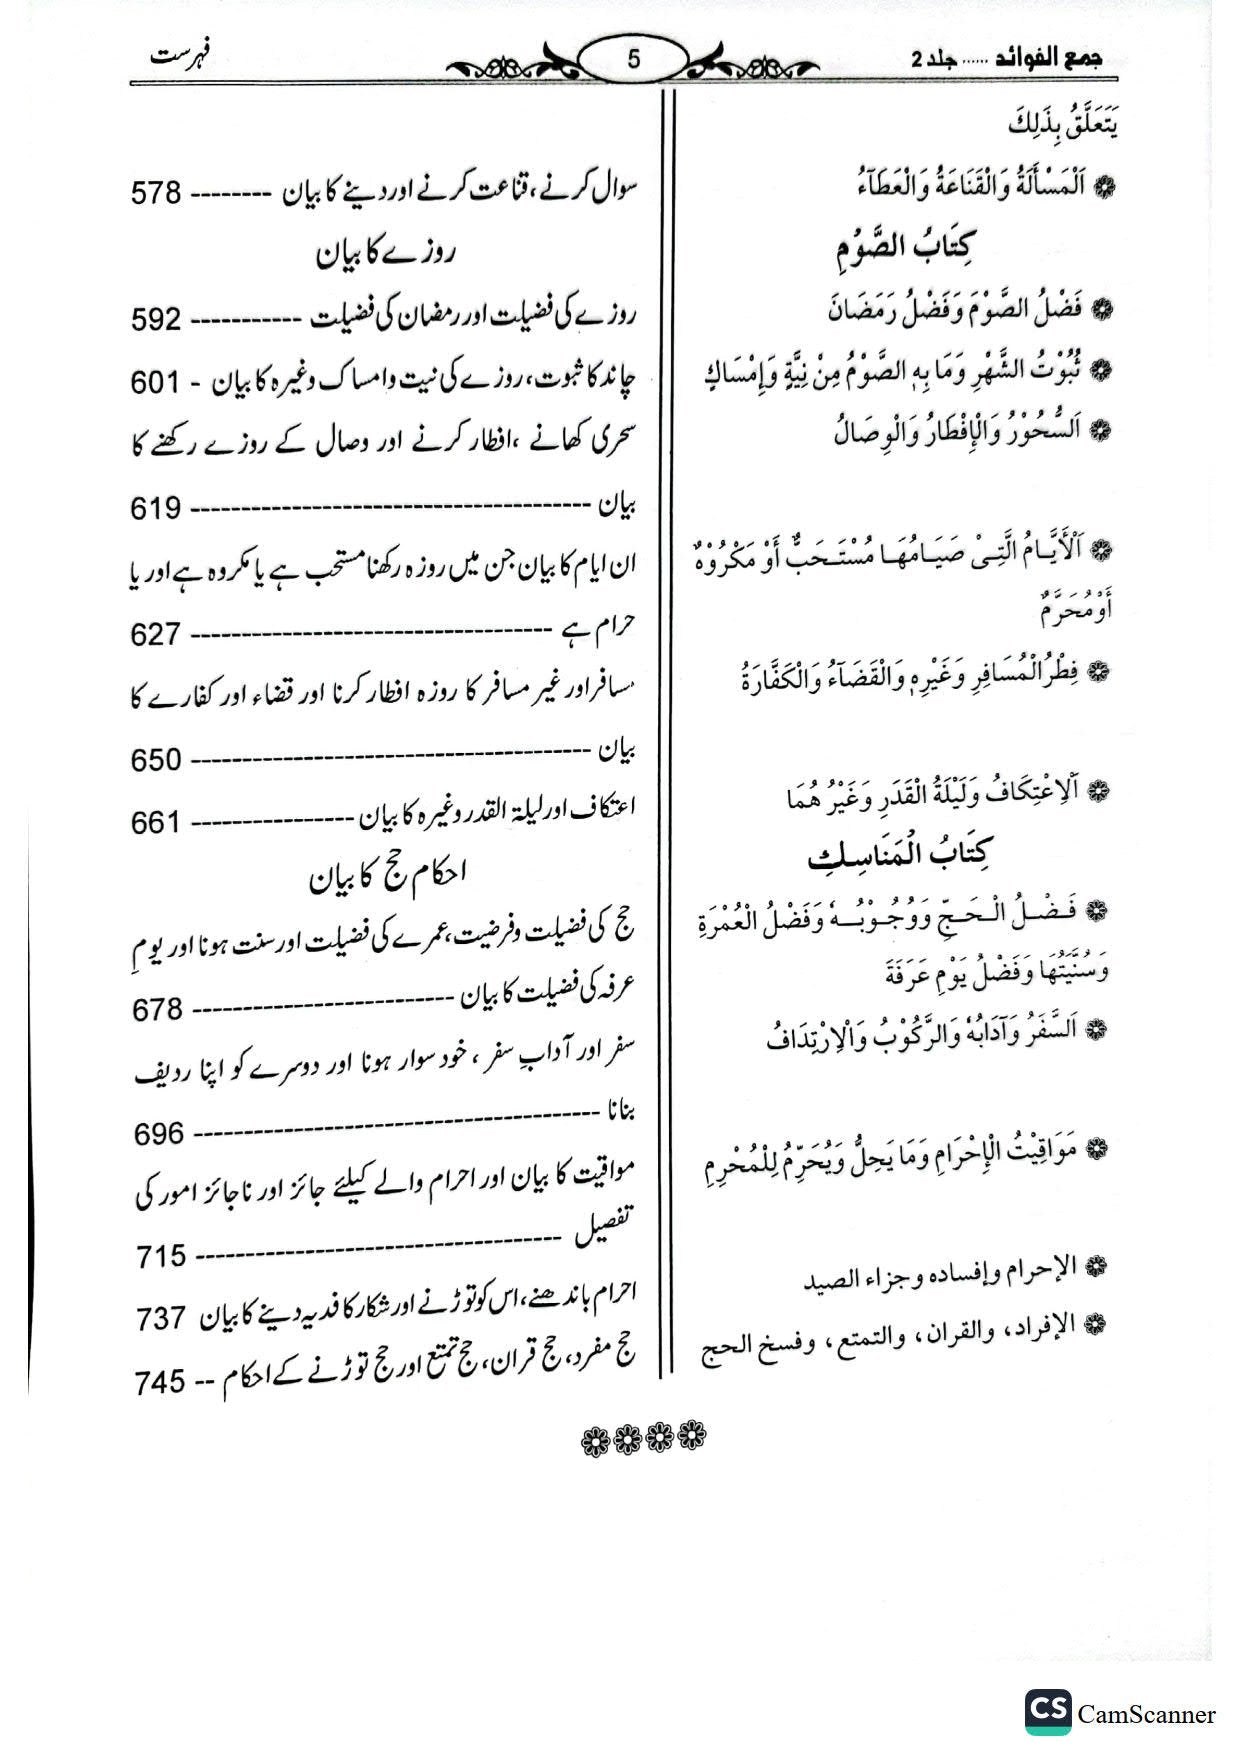 جمع الفوائد ...... جلد 2
5
فہرست
يَتَعَلَّقُ بِذَلِكَ
اَلْمَسْأَلَةُ وَالْقَنَاعَةُ وَالْعَطَآءُ
كِتَابُ الصَّوْمِ
فَضْلُ الصَّوْمَ وَفَضْلُ رَمَضَانَ
ثُبُوْتُ الشَّهْرِ وَمَا بِهِ الصَّوْمُ مِنْ نِيَّةٍ وَإِمْسَاكٍ
اَلسُّحُوْرُ وَالْإِفْطَارُ وَالْوِصَالُ
اَلْأَيَّامُ الَّتِىْ صَيَامُهَا مُسْتَحَبٌّ أَوْ مَكْرُوْهٌ
أَوْ مُحَرَّمٌ
فِطْرُ الْمُسَافِرِ وَغَيْرِهِ وَالْقَضَآءُ وَالْكَفَّارَةُ
اَلْاِعْتِكَافُ وَلَيْلَةُ الْقَدَرِ وَغَيْرُ هُمَا
كِتَابُ الْمَنَاسِكِ
فَضْلُ الْحَجِّ وَوُجُوْبُهُ وَفَضْلُ الْعُمْرَةِ
وَسُنِّيَّتُهَا وَفَضْلُ يَوْمِ عَرَفَةَ
اَلسَّفَرُ وَآدَابُهُ وَالرَّكُوْبُ وَالْاِرْتِدَافُ
مَوَاقِيْتُ الْإِحْرَامِ وَمَا يَحِلُّ وَيُحَرِّمُ لِلْمُحْرِمِ
الإحرام وإفساده وجزاء الصيد
الإفراد، والقران، والتمتع، وفسخ الحج
سوال کرنے، قناعت کرنے اور دینے کا بیان -------- 578
روزے کا بیان
روزے کی فضیلت اور رمضان کی فضیلت ----------- 592
چاند کا ثبوت، روزے کی نیت و امساک وغیرہ کا بیان - 601
سحری کھانے ، افطار کرنے اور وصال کے روزے رکھنے کا
بیان ---------------------------------------- 619
ان ایام کا بیان جن میں روزہ رکھنا مستحب ہے یا مکروہ ہے اور یا
حرام ہے ------------------------------------ 627
مسافر اور غیر مسافر کا روزہ افطار کرنا اور قضاء اور کفارے کا
بیان ---------------------------------------- 650
اعتکاف اور لیلۃ القدر وغیرہ کا بیان ---------------- 661
احکام حج کا بیان
حج کی فضیلت و فرضیت، عمرے کی فضیلت اور سنت ہونا اور یومِ
عرفہ کی فضیلت کا بیان -------------------------- 678
سفر اور آدابِ سفر ، خود سوار ہونا اور دوسرے کو اپنا ردیف
بنانا ---------------------------------------- 696
مواقیت کا بیان اور احرام والے کیلئے جائز اور ناجائز امور کی
تفصیل ------------------------------------ 715
احرام باندھنے، اس کو توڑنے اور شکار کا فدیہ دینے کا بیان 737
حج مفرد، حج قران، حج تمتع اور حج توڑنے کے احکام -- 745
CS CamScanner